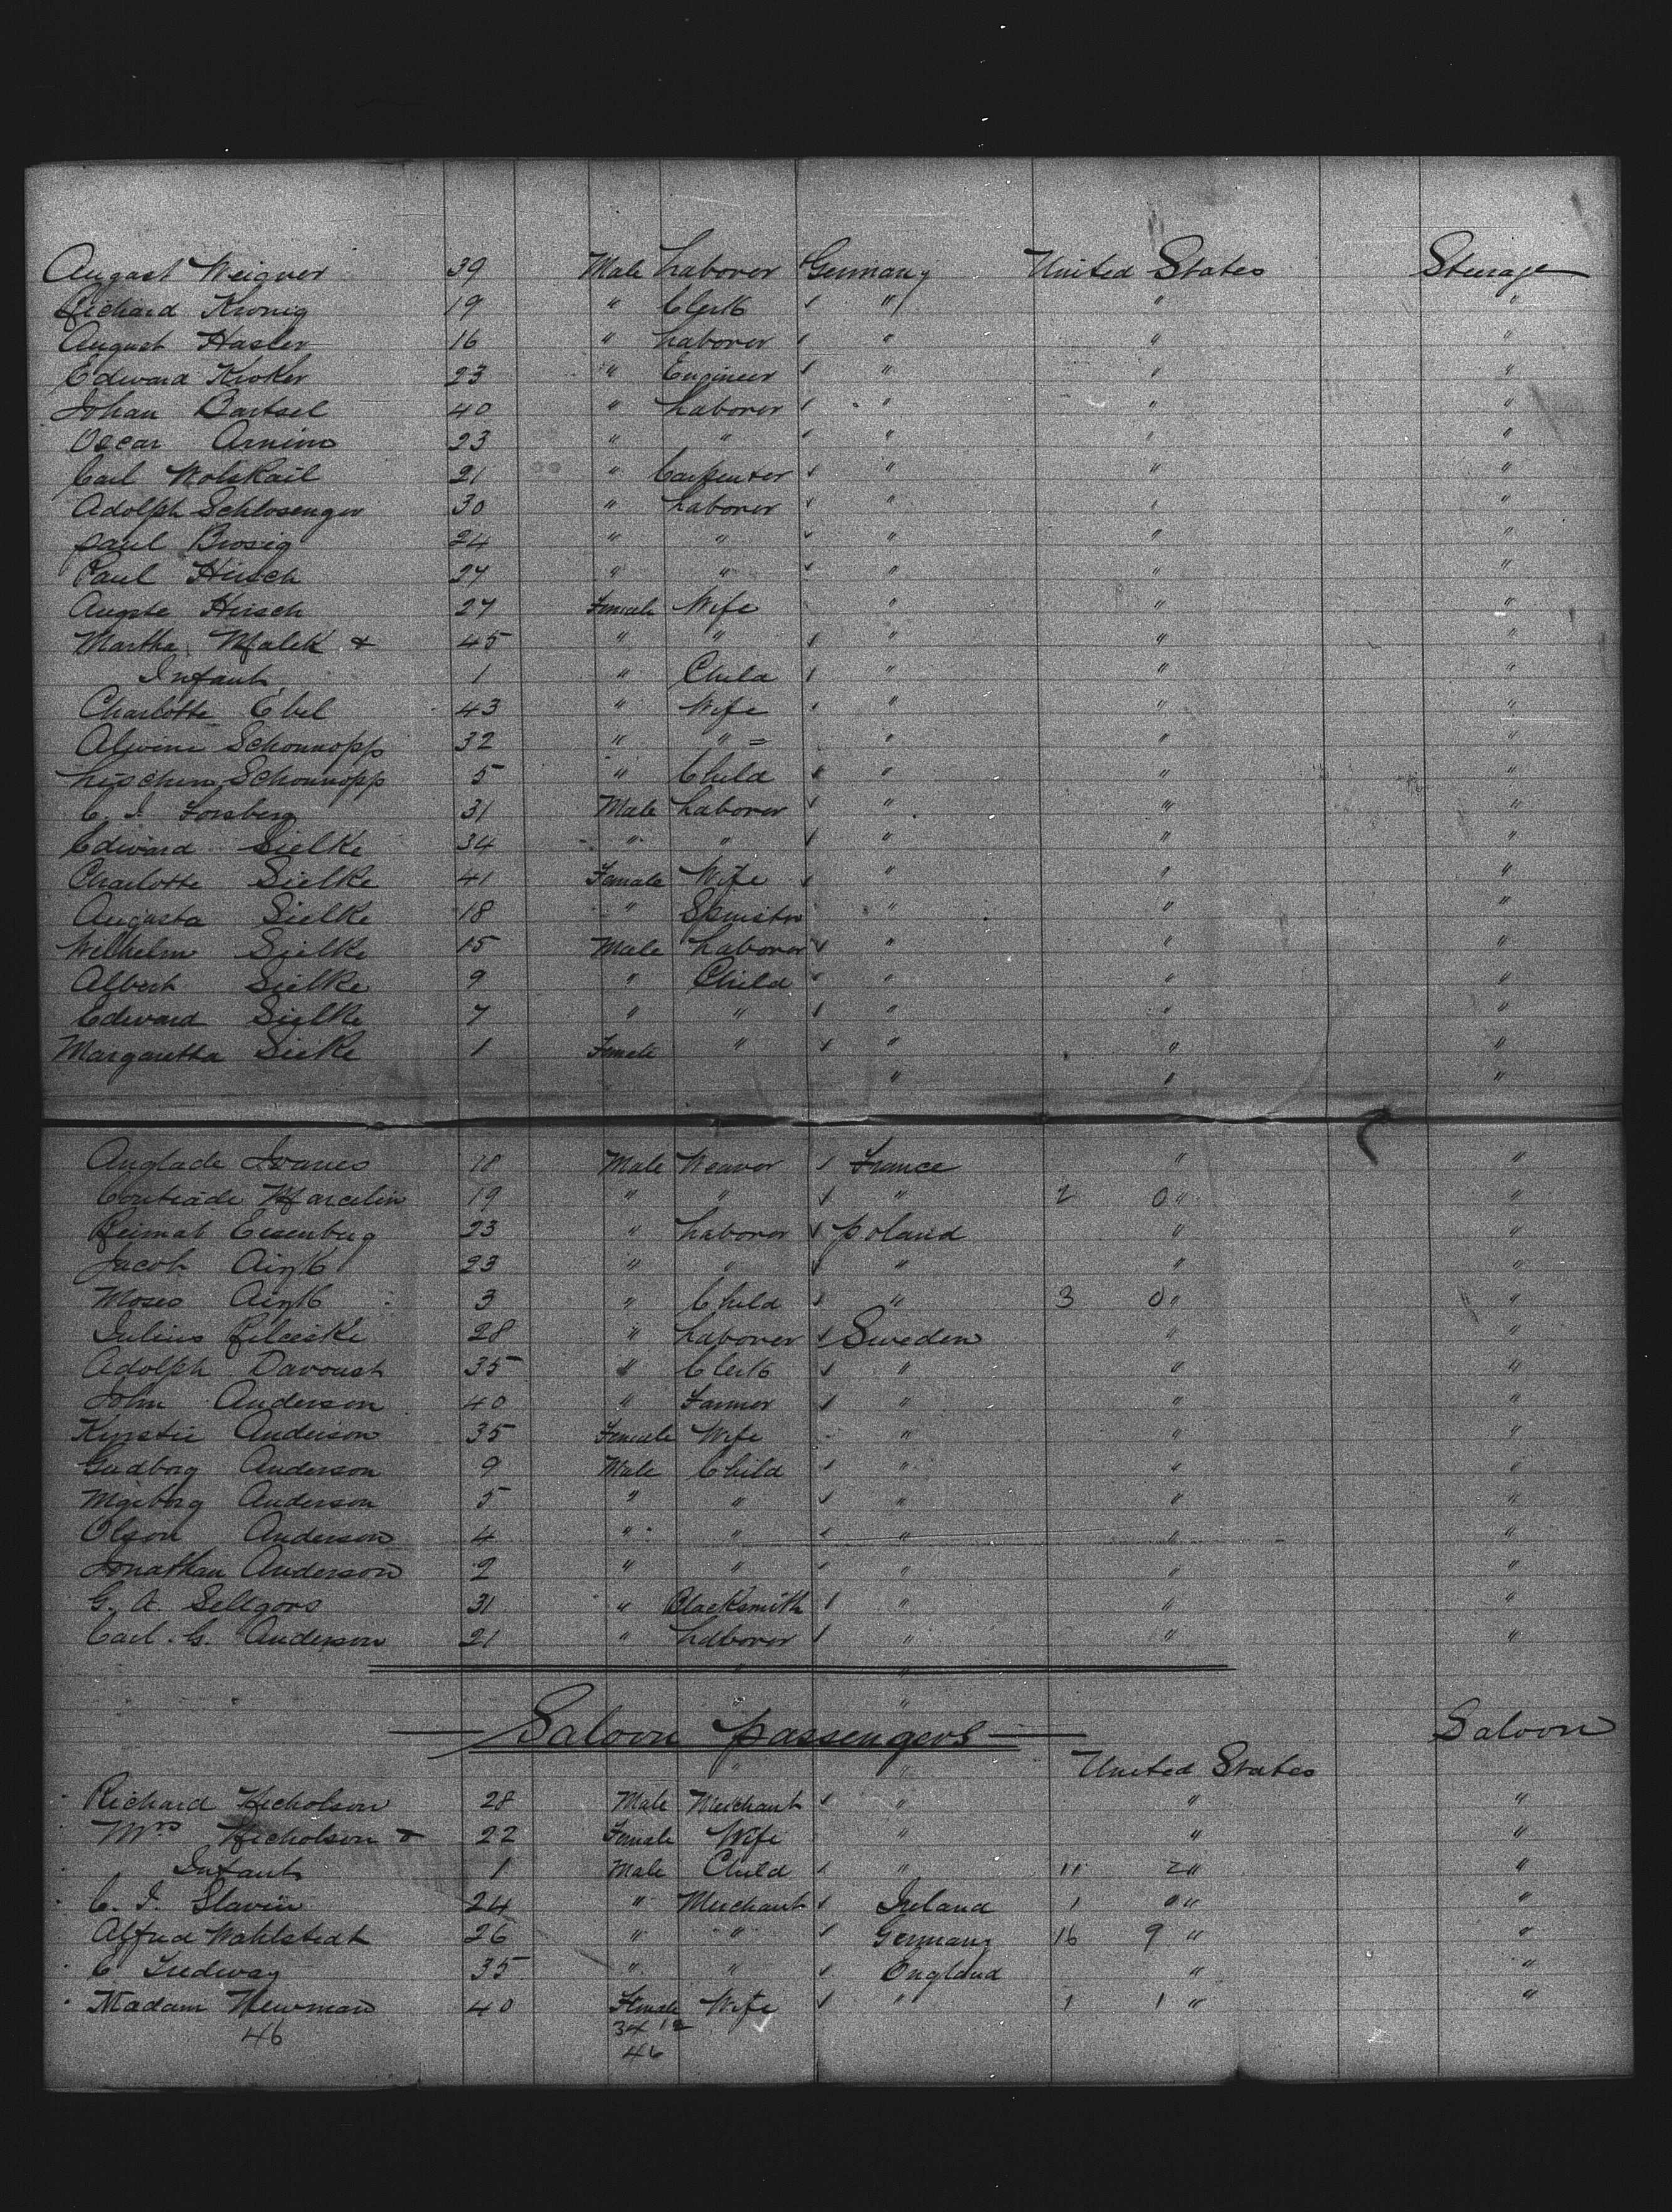 August Weigner 39 Male Laborer Germany United States Steerage
Richard Kronig 19 " Clerk " " "
August Hasler 16 " Laborer " " "
Edward Kroker 23 " Engineer " " "
Johan Bartsel 40 " Laborer " " "
Oscar Arnim 23 " " " " "
Carl Wolskail 21 " Carpenter " " "
Adolph Schlosenger 30 " Laborer " " "
Paul Brosig 24 " " " " "
Paul Hirsch 27 " " " " "
Auguste Hirsch 27 Female Wife " " "
Martha Malek & 45 " " " " "
Infant 1 " Child " " "
Charlotte Ebel 43 " Wife " " "
Alwine Schonnopp 32 " " " " "
Lieschen Schonnopp 5 " Child " " "
C. J. Forsberg 31 Male Laborer " " "
Edward Sielke 34 " " " " "
Charlotte Sielke 41 Female Wife " " "
Augusta Sielke 18 " Spinster " " "
Welhelm Sielke 15 Male Laborer " " "
Albert Sielke 9 " Child " " "
Edward Sielke 7 " " " " "
Margaretha Sieke 1 Female " " " "
" " "
Anglade Ivanes 18 Male Weavor France " "
Contrade Marcelin 19 " " " 2 0 " "
Reimat Eisenberg 23 " Laborer Poland " "
Jacob 23 " " " " "
Moses 3 " Child " 3 0 " "
Julius 28 " Laborer Sweden " "
Adolph Davoust 35 " Clerk " " "
John Anderson 40 " Farmer " " "
Kirstie Anderson 35 Female Wife " " "
Gudborg Anderson 9 Male Child " " "
Ingeborg Anderson 5 " " " " "
Olson Anderson 4 " " " " "
Jonathan Anderson 2 " " " " "
G. A. Sellgors 31 " Blacksmith " " "
Carl. G. Anderson 21 " Laborer " " "
" "
"
Saloon passengers Saloon
" " United States
Richard Nicholson 28 Male Merchant " " "
Mrs Nicholson & 22 Female Wife " " "
Infant 1 Male Child " 11 2 " "
C. J. Slavin 24 " Merchant Ireland 1 " " "
Alfred Wahlstedt 26 " " Germany 16 9 " "
C. Tredway 35 " " England " "
Madam Newman 40 Female Wife " 1 1 " "
46 34 12
46